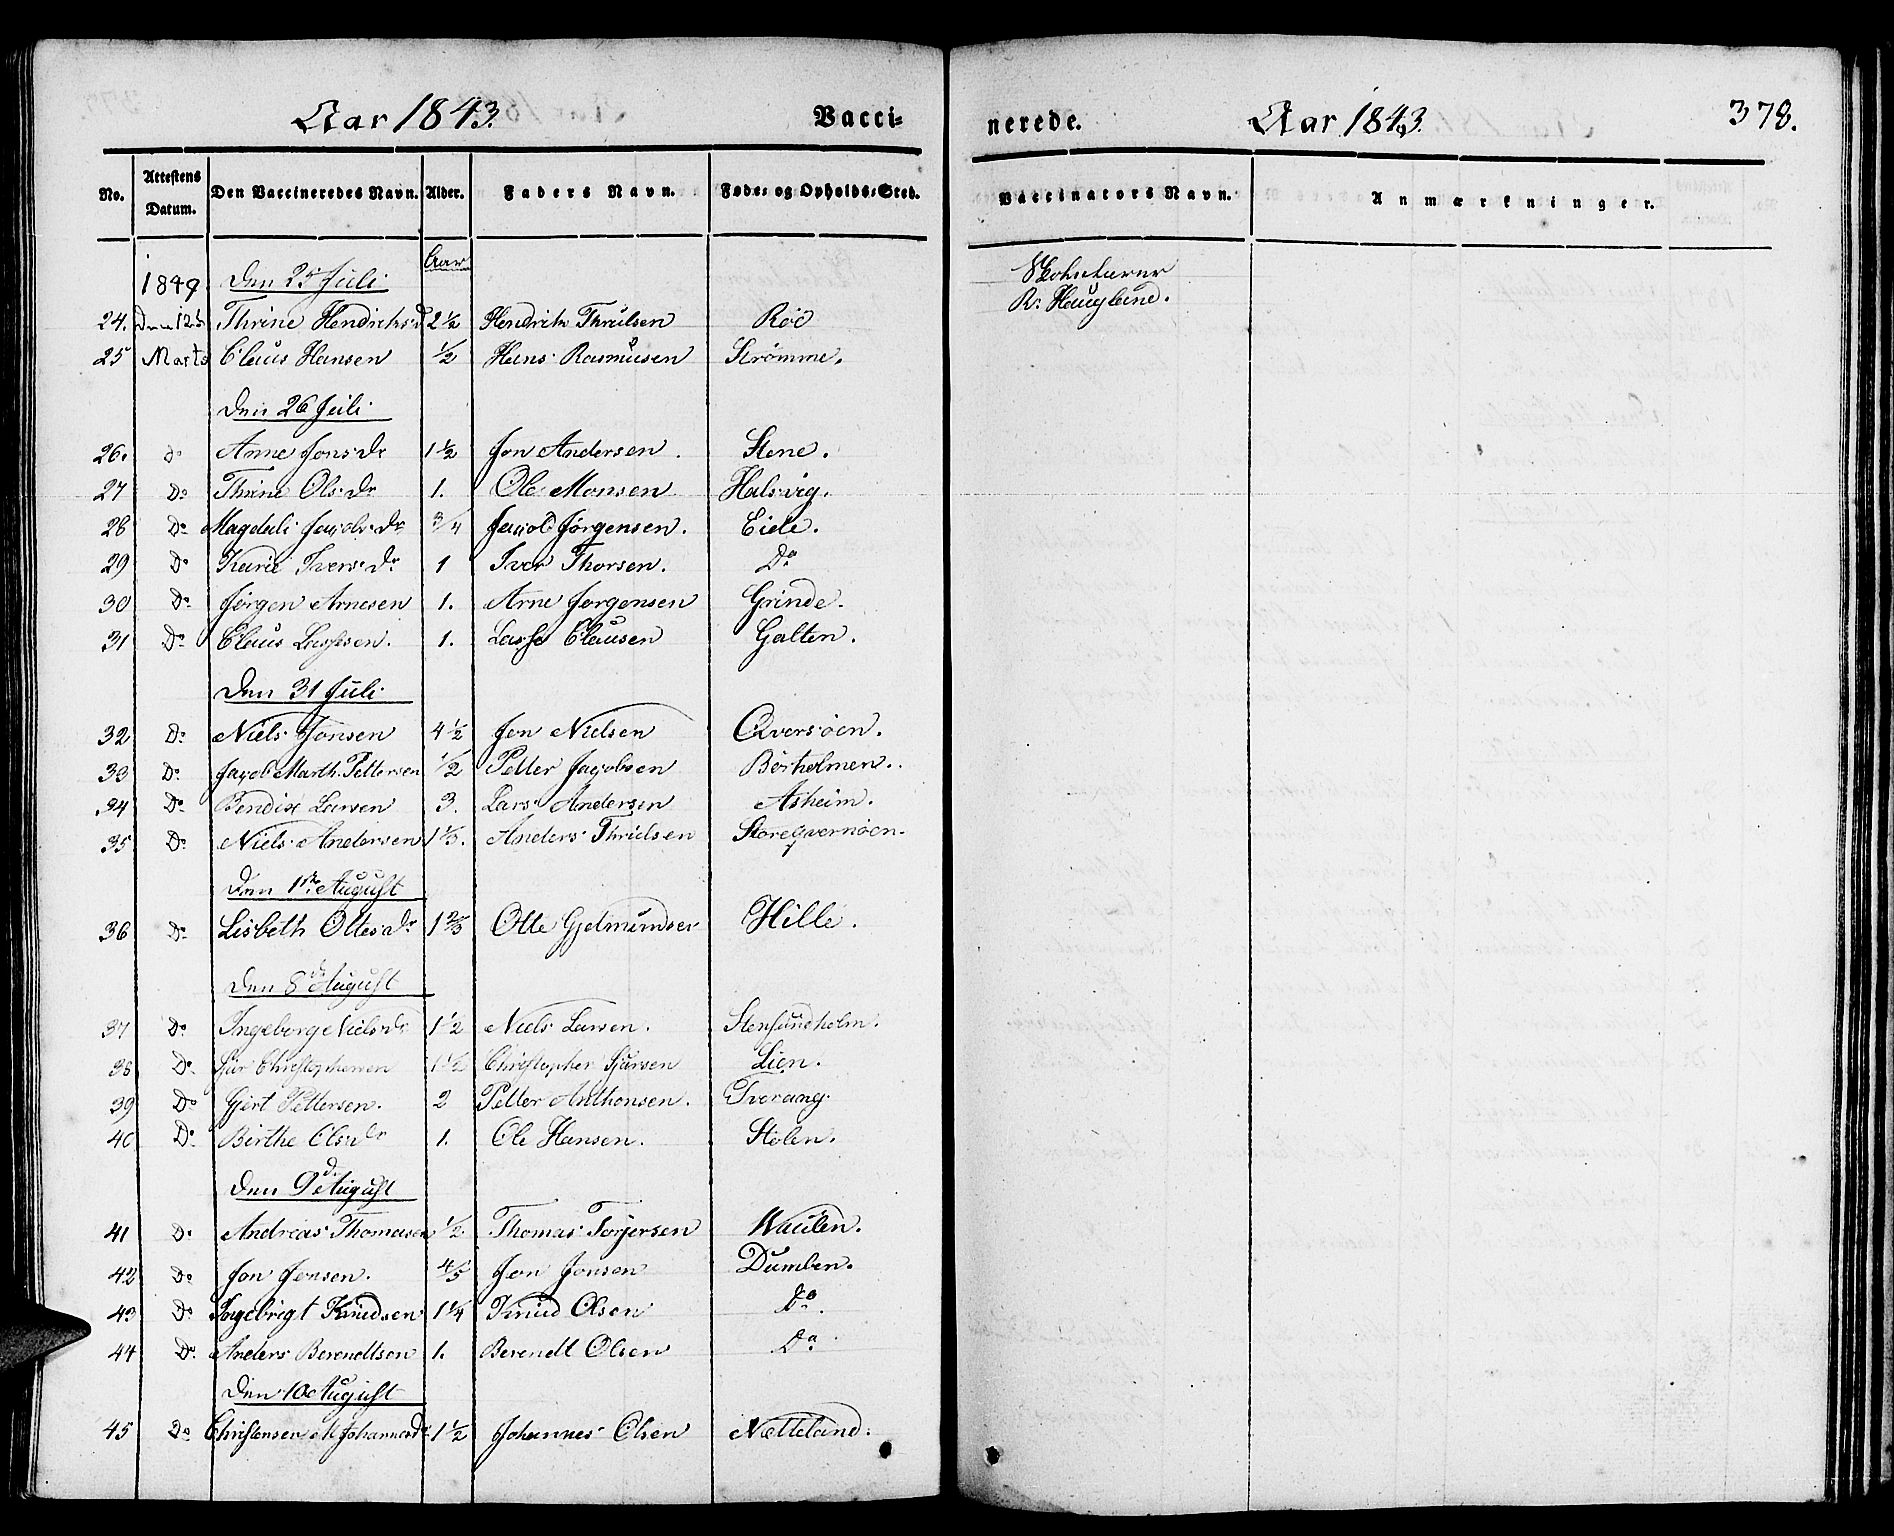 Aar 1843. Vacci- nerede. Aar 1843. 378.
No. Attestens Datum. Den Vaccineredes Navn. Alder. Faders Navn. Føde- og Opholds-Sted. Vaccinators Navn. Anmærkninger.
1849. Den 25 Juli Aar
R. Haugland.
24. Den 12te Thrine Hendriksd 2 1/2 Hendrik Thrulsen Röd
25 Marts Claus Hansen 1/2 Hans Rasmusen Strømme.
Den 26 Juli
26. Do Anne Jons Dr 1 1/2 Jon Andersen. Stene.
27 Do Thrine Ols Dr 1. Ole Monsen Halsvig.
28 Do Magdeli Jacobs Dr 3/4 Jacob Jørgensen. Eide.
29 Do Kari Ivers Dr 1 Iver Thorsen. Do
30 Do Jørgen Arnesen 1. Arne Jørgensen Grinde.
31 Do Claus Lassesen. 1. Lasse Clausen Galten.
Den 31 Juli
32 Do Niels Jonsen 4 1/2 Jon Nielsen Qversöen.
33 Do Jacob Marth. Pettersen 1/2 Petter Jacobsen Börholmen.
34 Do Bendix Larsen 3. Lars Andersen Asheim.
35 Do Niels Andersen 1 1/3. Anders Thrulsen Store Qvernöen.
Den 1ste August
36 Do Lisbeth Ottes Dr 1 2/3 Otte Gjelmundsen Hille.
Den 8de August
37 Do Ingeborg Niels Dr 1 1/2 Niels Larsen. Stensundholm.
38 Do Sjur Christophersen 1 1/2 Christopher Sjursen Lien.
39 Do Gjert Pettersen. 2 Petter Anthonsen. Tverang.
40 Do Birthe Ols Dr 1. Ole Hansen. Stölen.
Den 9de August
41 Do Andreas Thomasen 1/2 Thomas Torjersen Waulen.
42 Do Jon Jonsen. 4/5 Jon Jonsen Dumben.
43 Do Ingebrigt Knudsen 1 1/4 Knud Olsen Do.
44 Do Anders Berendtsen 1. Berendt Olsen Do
Den 10 August
45 Do Christense M Johannes Dr 1 1/2 Johannes Olsen Netteland.